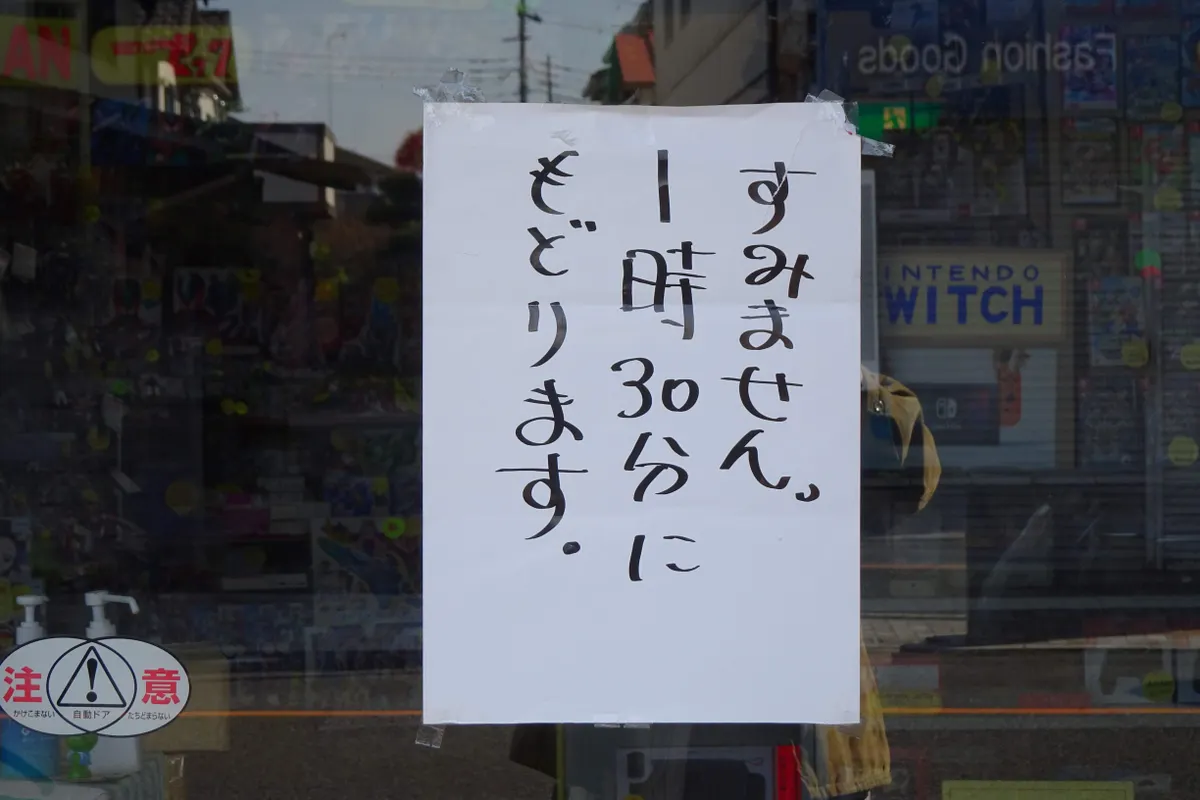 すみません。
1時30分に
もどります.
Fashion Goods
INTENDO
WITCH
注意
かけこまない
自動ドア
たちどまらない